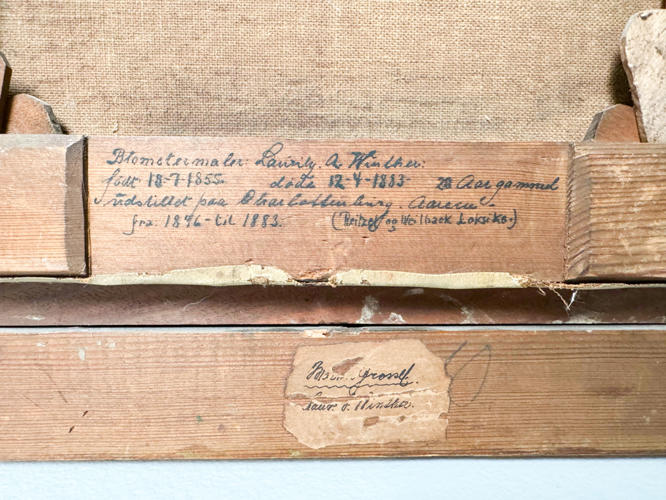 Blomstermaler: Lauritz. A. Winther:
født 18-7-1855. døde 12-4-1883 28 Aar gammel
Udstillet paa Charlottenburg. Aarene -
fra. 1876 - til 1883. (Reitzel og Weilback Leksiko.)
Grossf.
Laur. A. Winther.